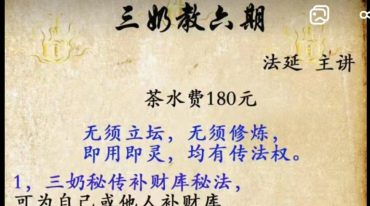 三奶教六期
法延 主讲
茶水费180元
无须立坛，无须修炼，
即用即灵，均有传法权。
1，三奶秘传补财库秘法，
可为自己或他人补财库